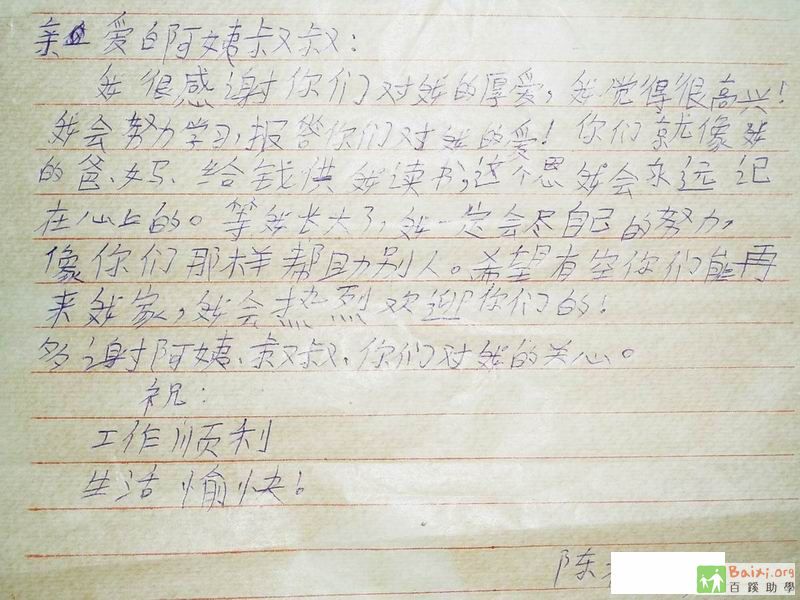 亲爱的阿姨叔叔:
我很感谢你们对我的厚爱,我觉得很高兴!
我会努力学习,报答你们对我的爱!你们就像我
的爸、妈、给钱供我读书,这个恩我会永远记
在心上的。等我长大了,我一定会尽自己的努力,
像你们那样帮助别人。希望有空你们能再
来我家,我会热烈欢迎你们的!
多谢阿姨、叔叔、你们对我的关心。
祝:
工作顺利
生活愉快!
陈
Baixi.org
百蹊助學